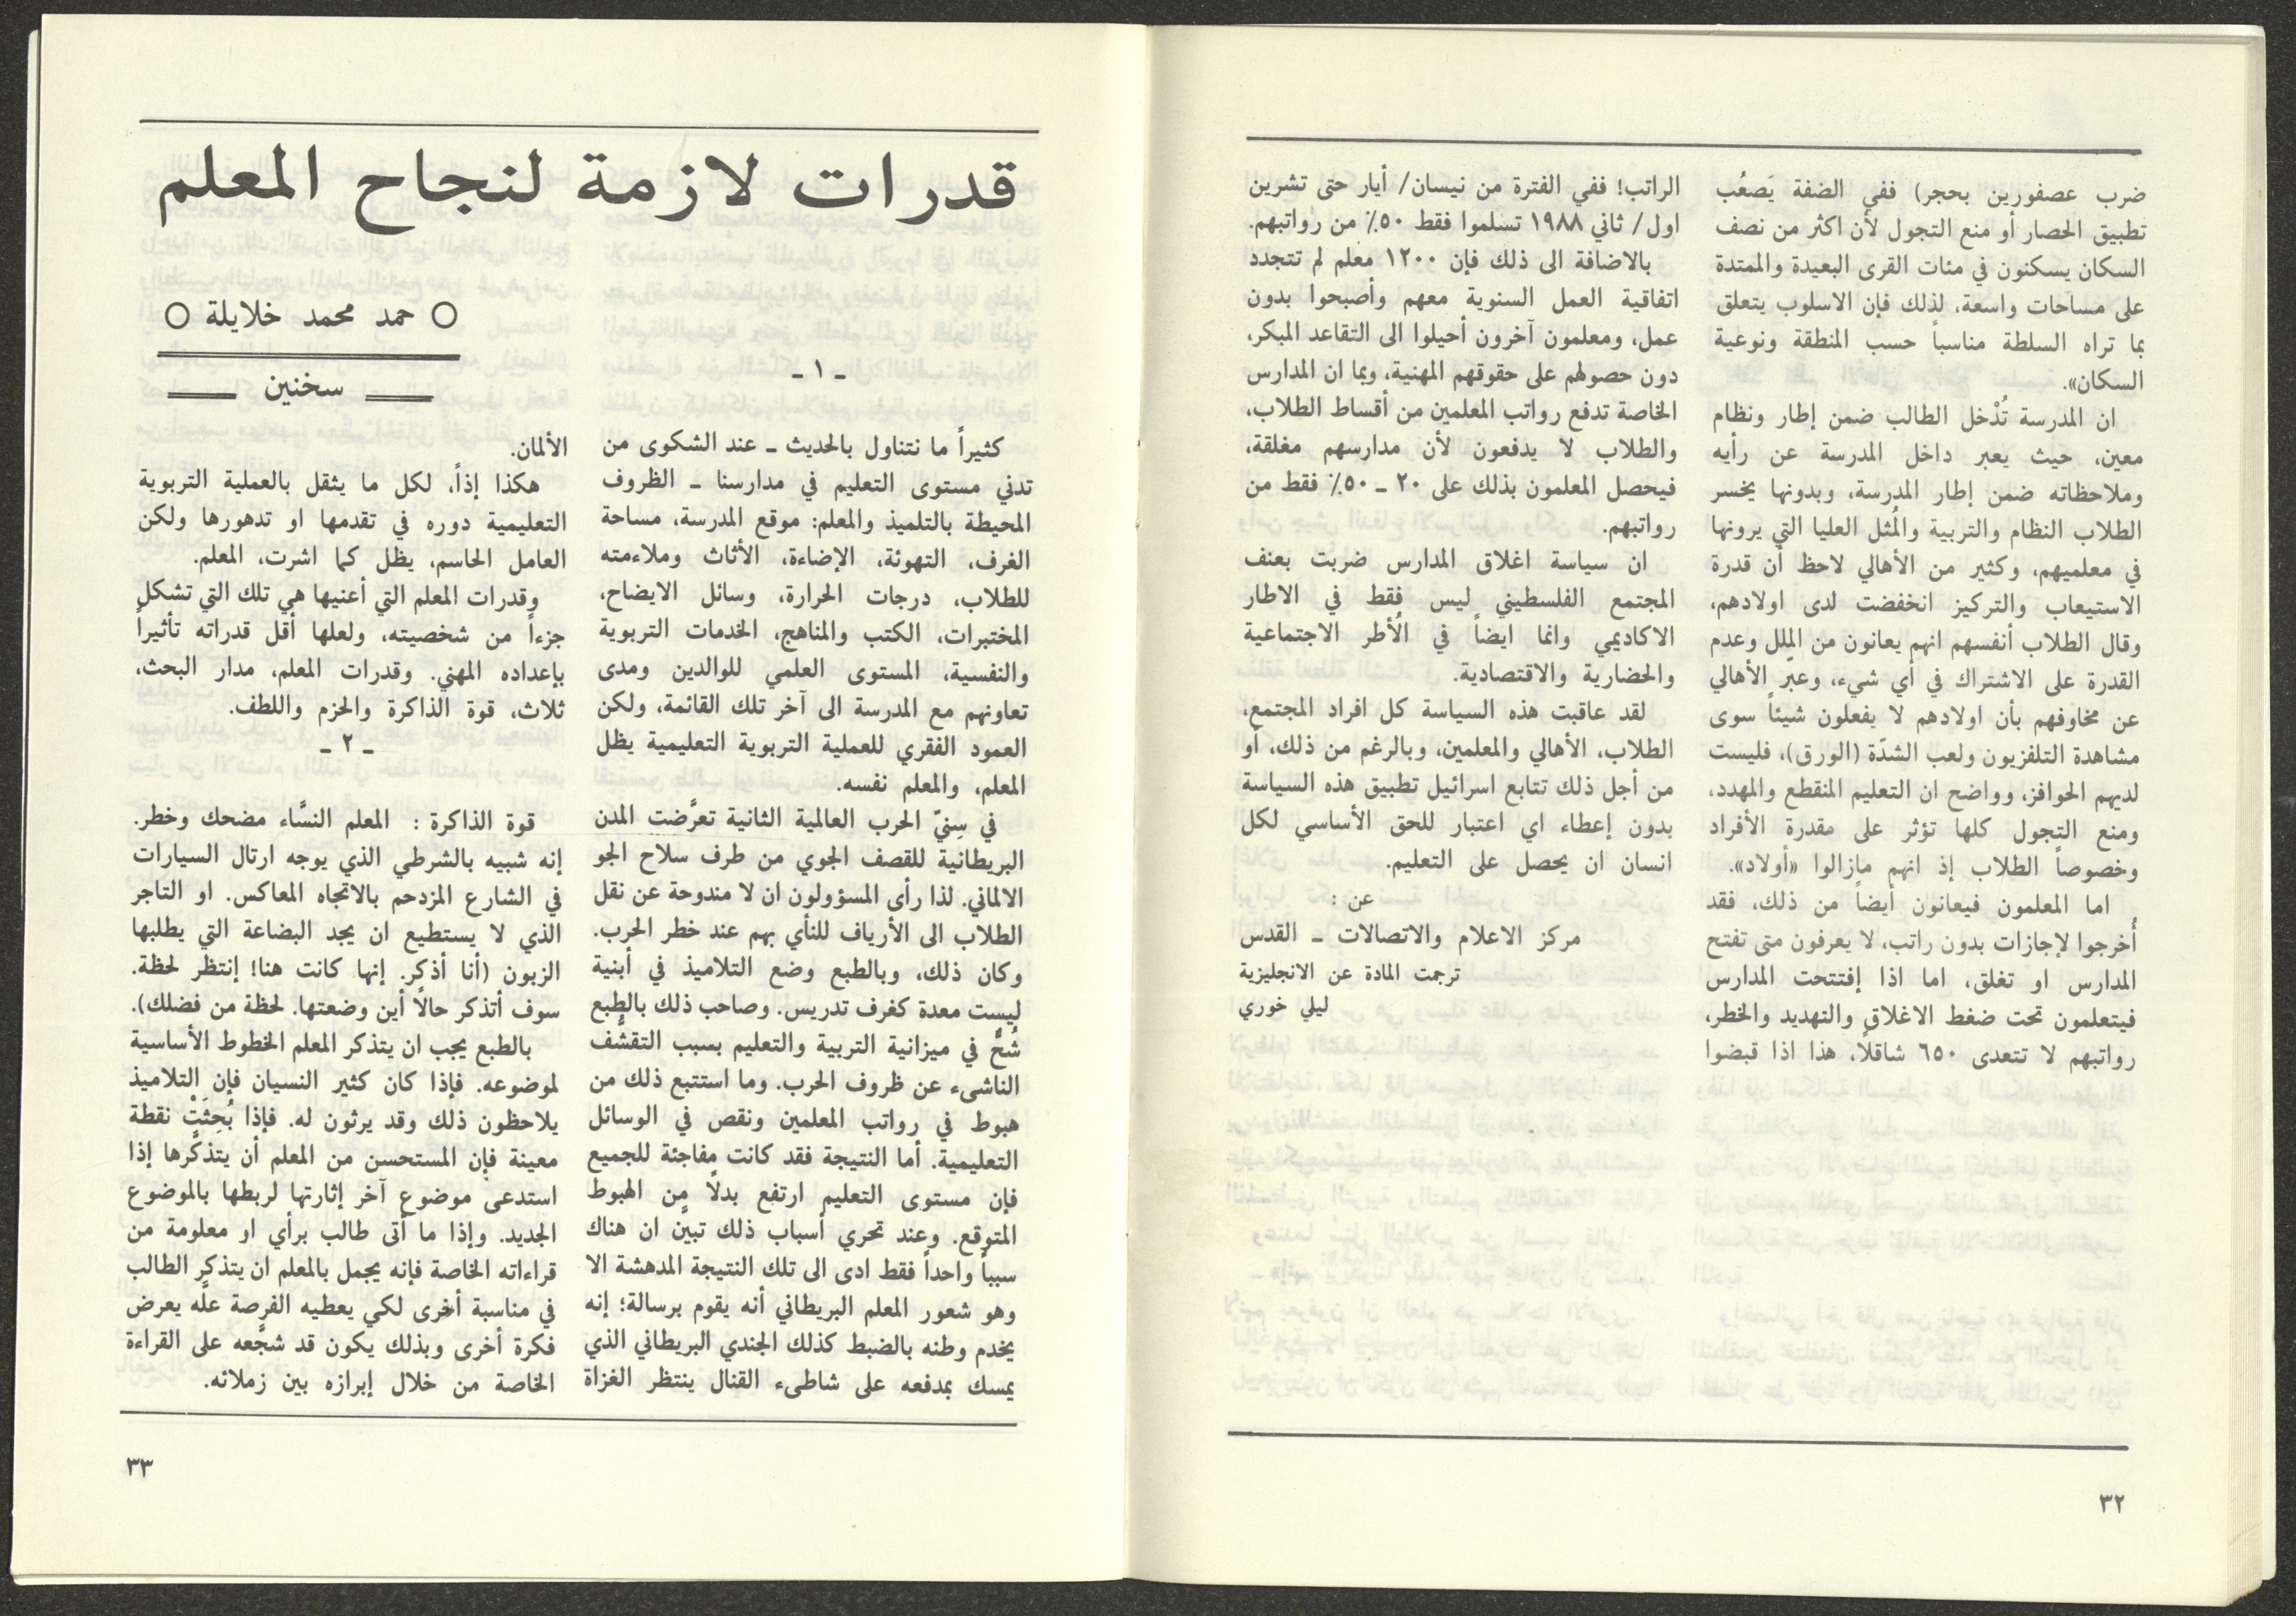 ضرب عصفورين بحجر) ففي الضفة يَصعُب
تطبيق الحصار أو منع التجول لأن اكثر من نصف
السكان يسكنون في مئات القرى البعيدة والممتدة
على مساحات واسعة، لذلك فإن الاسلوب يتعلق
بما تراه السلطة مناسباً حسب المنطقة ونوعية
السكان».
ان المدرسة تُدْخل الطالب ضمن إطار ونظام
معين، حيث يعبر داخل المدرسة عن رأيه
وملاحظاته ضمن إطار المدرسة، وبدونها يخسر
الطلاب النظام والتربية والمُثل العليا التي يرونها
في معلميهم، وكثير من الأهالي لاحظ أن قدرة
الاستيعاب والتركيز انخفضت لدى اولادهم،
وقال الطلاب أنفسهم انهم يعانون من الملل وعدم
القدرة على الاشتراك في أي شيء، وعبّر الأهالي
عن مخاوفهم بأن اولادهم لا يفعلون شيئاً سوى
مشاهدة التلفزيون ولعب الشدّة (الورق)، فليست
لديهم الحوافز، وواضح ان التعليم المنقطع والمهدد،
ومنع التجول كلها تؤثر على مقدرة الأفراد
وخصوصاً الطلاب إذ انهم مازالوا «أولاد».
اما المعلمون فيعانون أيضاً من ذلك، فقد
أُخرجوا لإجازات بدون راتب، لا يعرفون متى تفتح
المدارس او تغلق، اما اذا إفتتحت المدارس
فيتعلمون تحت ضغط الاغلاق والتهديد والخطر،
رواتبهم لا تتعدى ٦٥٠ شاقلًا، هذا اذا قبضوا
الراتب! ففي الفترة من نيسان/ أيار حتى تشرين
اول/ ثاني ١٩٨٨ تسلموا فقط ٥٠٪ من رواتبهم.
بالاضافة الى ذلك فإن ١٢٠٠ معلم لم تتجدد
اتفاقية العمل السنوية معهم وأصبحوا بدون
عمل، ومعلمون آخرون أحيلوا الى التقاعد المبكر،
دون حصولهم على حقوقهم المهنية، وبما ان المدارس
الخاصة تدفع رواتب المعلمين من أقساط الطلاب،
والطلاب لا يدفعون لأن مدارسهم مغلقة،
فيحصل المعلمون بذلك على ٢٠ ـ ٥٠٪ فقط من
رواتبهم.
ان سياسة اغلاق المدارس ضربت بعنف
المجتمع الفلسطيني ليس فقط في الاطار
الاكاديمي وانما ايضاً في الأُطر الاجتماعية
والحضارية والاقتصادية.
لقد عاقبت هذه السياسة كل افراد المجتمع،
الطلاب، الأهالي والمعلمين، وبالرغم من ذلك، أو
من أجل ذلك تتابع اسرائيل تطبيق هذه السياسة
بدون إعطاء اي اعتبار للحق الأساسي لكل
انسان ان يحصل على التعليم.
عن :
مركز الاعلام والاتصالات ـ القدس
ترجمت المادة عن الانجليزية
ليلي خوري
٣٢
قدرات لازمة لنجاح المعلم
○ حمد محمد خلايلة ○
سخنين
ـ ١ ـ
كثيراً ما نتناول بالحديث ـ عند الشكوى من
تدني مستوى التعليم في مدارسنا ـ الظروف
المحيطة بالتلميذ والمعلم: موقع المدرسة، مساحة
الغرف، التهوئة، الإضاءة، الأثاث وملاءمته
للطلاب، درجات الحرارة، وسائل الايضاح،
المختبرات، الكتب والمناهج، الخدمات التربوية
والنفسية، المستوى العلمي للوالدين ومدى
تعاونهم مع المدرسة الى آخر تلك القائمة، ولكن
العمود الفقري للعملية التربوية التعليمية يظل
المعلم، والمعلم نفسه.
في سِنيّ الحرب العالمية الثانية تعرَّضت المدن
البريطانية للقصف الجوي من طرف سلاح الجو
الالماني. لذا رأى المسؤولون ان لا مندوحة عن نقل
الطلاب الى الأرياف للنأي بهم عند خطر الحرب.
وكان ذلك، وبالطبع وضع التلاميذ في أبنية
ليست معدة كغرف تدريس. وصاحب ذلك بالطبع
شُحٌّ في ميزانية التربية والتعليم بسبب التقشُّف
الناشىء عن ظروف الحرب. وما استتبع ذلك من
هبوط في رواتب المعلمين ونقص في الوسائل
التعليمية. أما النتيجة فقد كانت مفاجئة للجميع
فإن مستوى التعليم ارتفع بدلًا من الهبوط
المتوقع. وعند تحري أسباب ذلك تبيَّن ان هناك
سبباً واحداً فقط ادى الى تلك النتيجة المدهشة الا
وهو شعور المعلم البريطاني أنه يقوم برسالة؛ إنه
يخدم وطنه بالضبط كذلك الجندي البريطاني الذي
يمسك بمدفعه على شاطىء القنال ينتظر الغزاة
الألمان.
هكذا إذاً، لكل ما يثقل بالعملية التربوية
التعليمية دوره في تقدمها او تدهورها ولكن
العامل الحاسم، يظل كما اشرت، المعلم.
وقدرات المعلم التي أعنيها هي تلك التي تشكل
جزءاً من شخصيته، ولعلها أقل قدراته تأثيراً
بإعداده المهني. وقدرات المعلم، مدار البحث،
ثلاث، قوة الذاكرة والحزم واللطف.
ـ ٢ ـ
قوة الذاكرة : المعلم النسَّاء مضحك وخطر.
إنه شبيه بالشرطي الذي يوجه ارتال السيارات
في الشارع المزدحم بالاتجاه المعاكس. او التاجر
الذي لا يستطيع ان يجد البضاعة التي يطلبها
الزبون (أنا أذكر. إنها كانت هنا! إنتظر لحظة.
سوف أتذكر حالًا أين وضعتها. لحظة من فضلك).
بالطبع يجب ان يتذكر المعلم الخطوط الأساسية
لموضوعه. فإذا كان كثير النسيان فإن التلاميذ
يلاحظون ذلك وقد يرثون له. فإذا بُحِثَتْ نقطة
معينة فإن المستحسن من المعلم أن يتذكَّرها إذا
استدعى موضوع آخر إثارتها لربطها بالموضوع
الجديد. وإذا ما أتى طالب برأي او معلومة من
قراءاته الخاصة فإنه يجمل بالمعلم ان يتذكر الطالب
في مناسبة أخرى لكي يعطيه الفرصة علَّه يعرض
فكرة أخرى وبذلك يكون قد شجَّعه على القراءة
الخاصة من خلال إبرازه بين زملائه.
٣٣